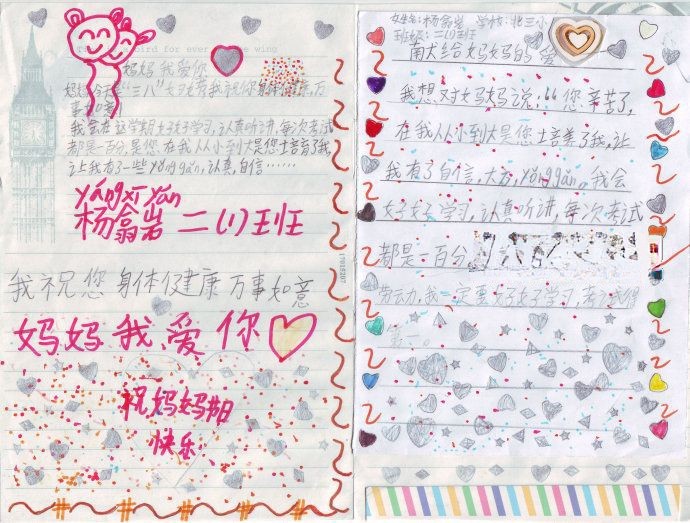 bird for ever
wing
妈妈我爱你
妈妈今天是"三八"妇女节我祝你身体健康,万
事如意!
我会在这学期好好学习,认真听讲,每次考试
都是一百分,是您在我从小到大是您培育了我,
让我有了一些yǒnggǎn,认真,自信……
yáng xī yán
杨翕岩 二(1)班
17015207
我祝您身体健康万事如意
妈妈我爱你
祝妈妈节日
快乐
姓名:杨翕岩 学校:北三小
班级:二(1)班
献给妈妈的爱
我想对妈妈说:"您辛苦了,
在我从小到大是您培养了我,让
我有了自信,大方,yǒnggǎn。我会
好好学习,认真听讲,每次考试
都是一百分。
劳动力,我一定要好好学习,考试得
第一。